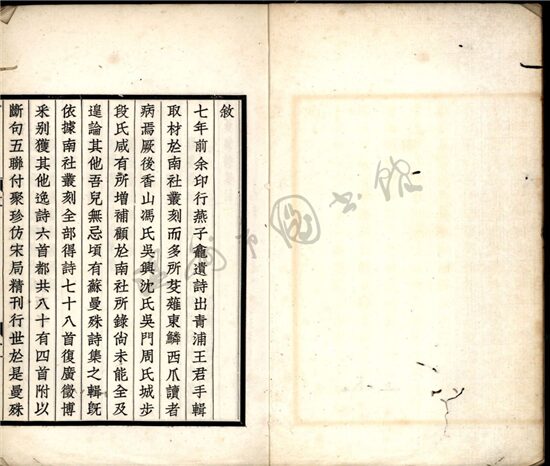 敘
七年前余印行燕子龕遺詩出青浦王君手輯
取材於南社叢刻而多所芟薙東鱗西爪讀者
病焉厥後香山馮氏吳興沈氏吳門周氏城步
段氏咸有所增補顧於南社所錄尙未能全及
遑論其他吾兒無忌頃有蘇曼殊詩集之輯旣
依據南社叢刻全部得詩七十八首復廣徵博
釆别獲其他逸詩六首都共八十有四首附以
斷句五聯付聚珍仿宋局精刊行世於是曼殊